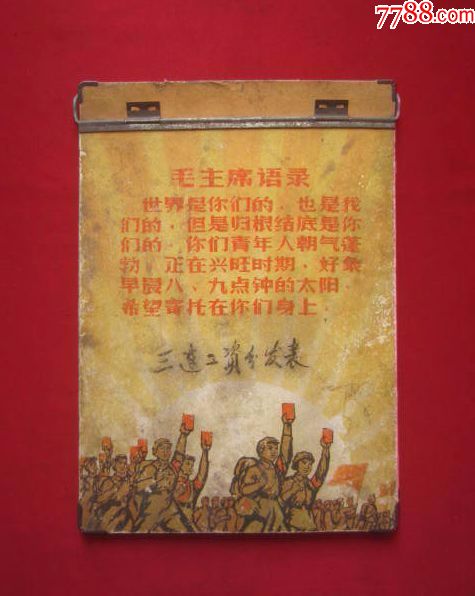 7788.com
中国收藏热线
毛主席语录
世界是你们的，也是我
们的，但是归根结底是你
们的。你们青年人朝气蓬
勃，正在兴旺时期，好象
早晨八、九点钟的太阳。
希望寄托在你们身上。
三连工资分发表